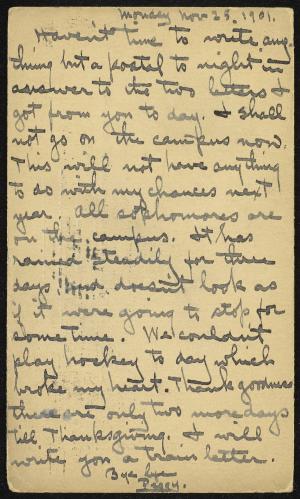 Monday Nov 25, 1901.
Haven't time to write any-
thing but a postal to night in
answer to the two letters I
got from you to day. I shall
not go on the campus now.
This will not have anything
to do with my chances next
year. All sophomores are
on the campus. It has
rained steadily for three
days and doesn't look as
if it were going to stop for
some time. We couldn't
play hockey to day which
broke my heart. Thank goodness
there are only two more days
till Thanksgiving. I will
write you a train letter.
Bye bye
Peggy.